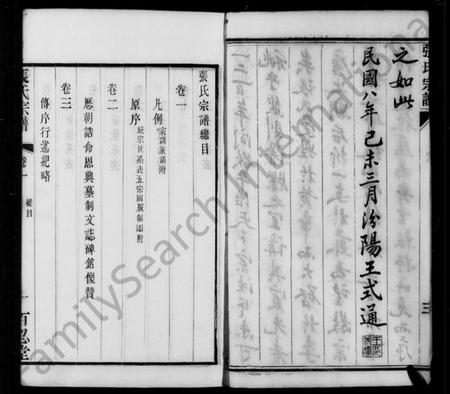 張氏宗譜
三
之如此
民國八年己未三月汾陽王式通
張氏宗譜總目
卷一
凡例 宗訓家訓附
原序
卷二
歷朝誥命恩典墓制文誌碑銘像贊
卷三
傳序行述紀略
張氏宗譜
卷一
總目
一
百忍堂
FamilySearch International